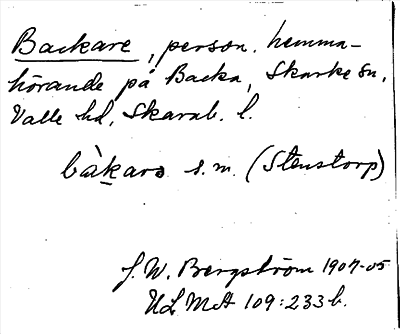 Backare, person. hemma-
hörande på Backa, Skarke sn,
Valle hd, Skarab. l.
bàkarə s.m. (Stenstorp)
J. W. Bergström 1904-05
ULMA 109:233 b.